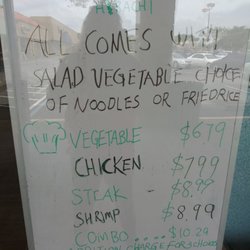 HIBACHI
ALL COMES WITH
SALAD VEGETABLE CHOICE
OF NOODLES OR FRIEDRICE
VEGETABLE $6.79
CHICKEN $7.99
STEAK $8.99
SHRIMP $8.99
COMBO..... $10.29
CHARGE FOR